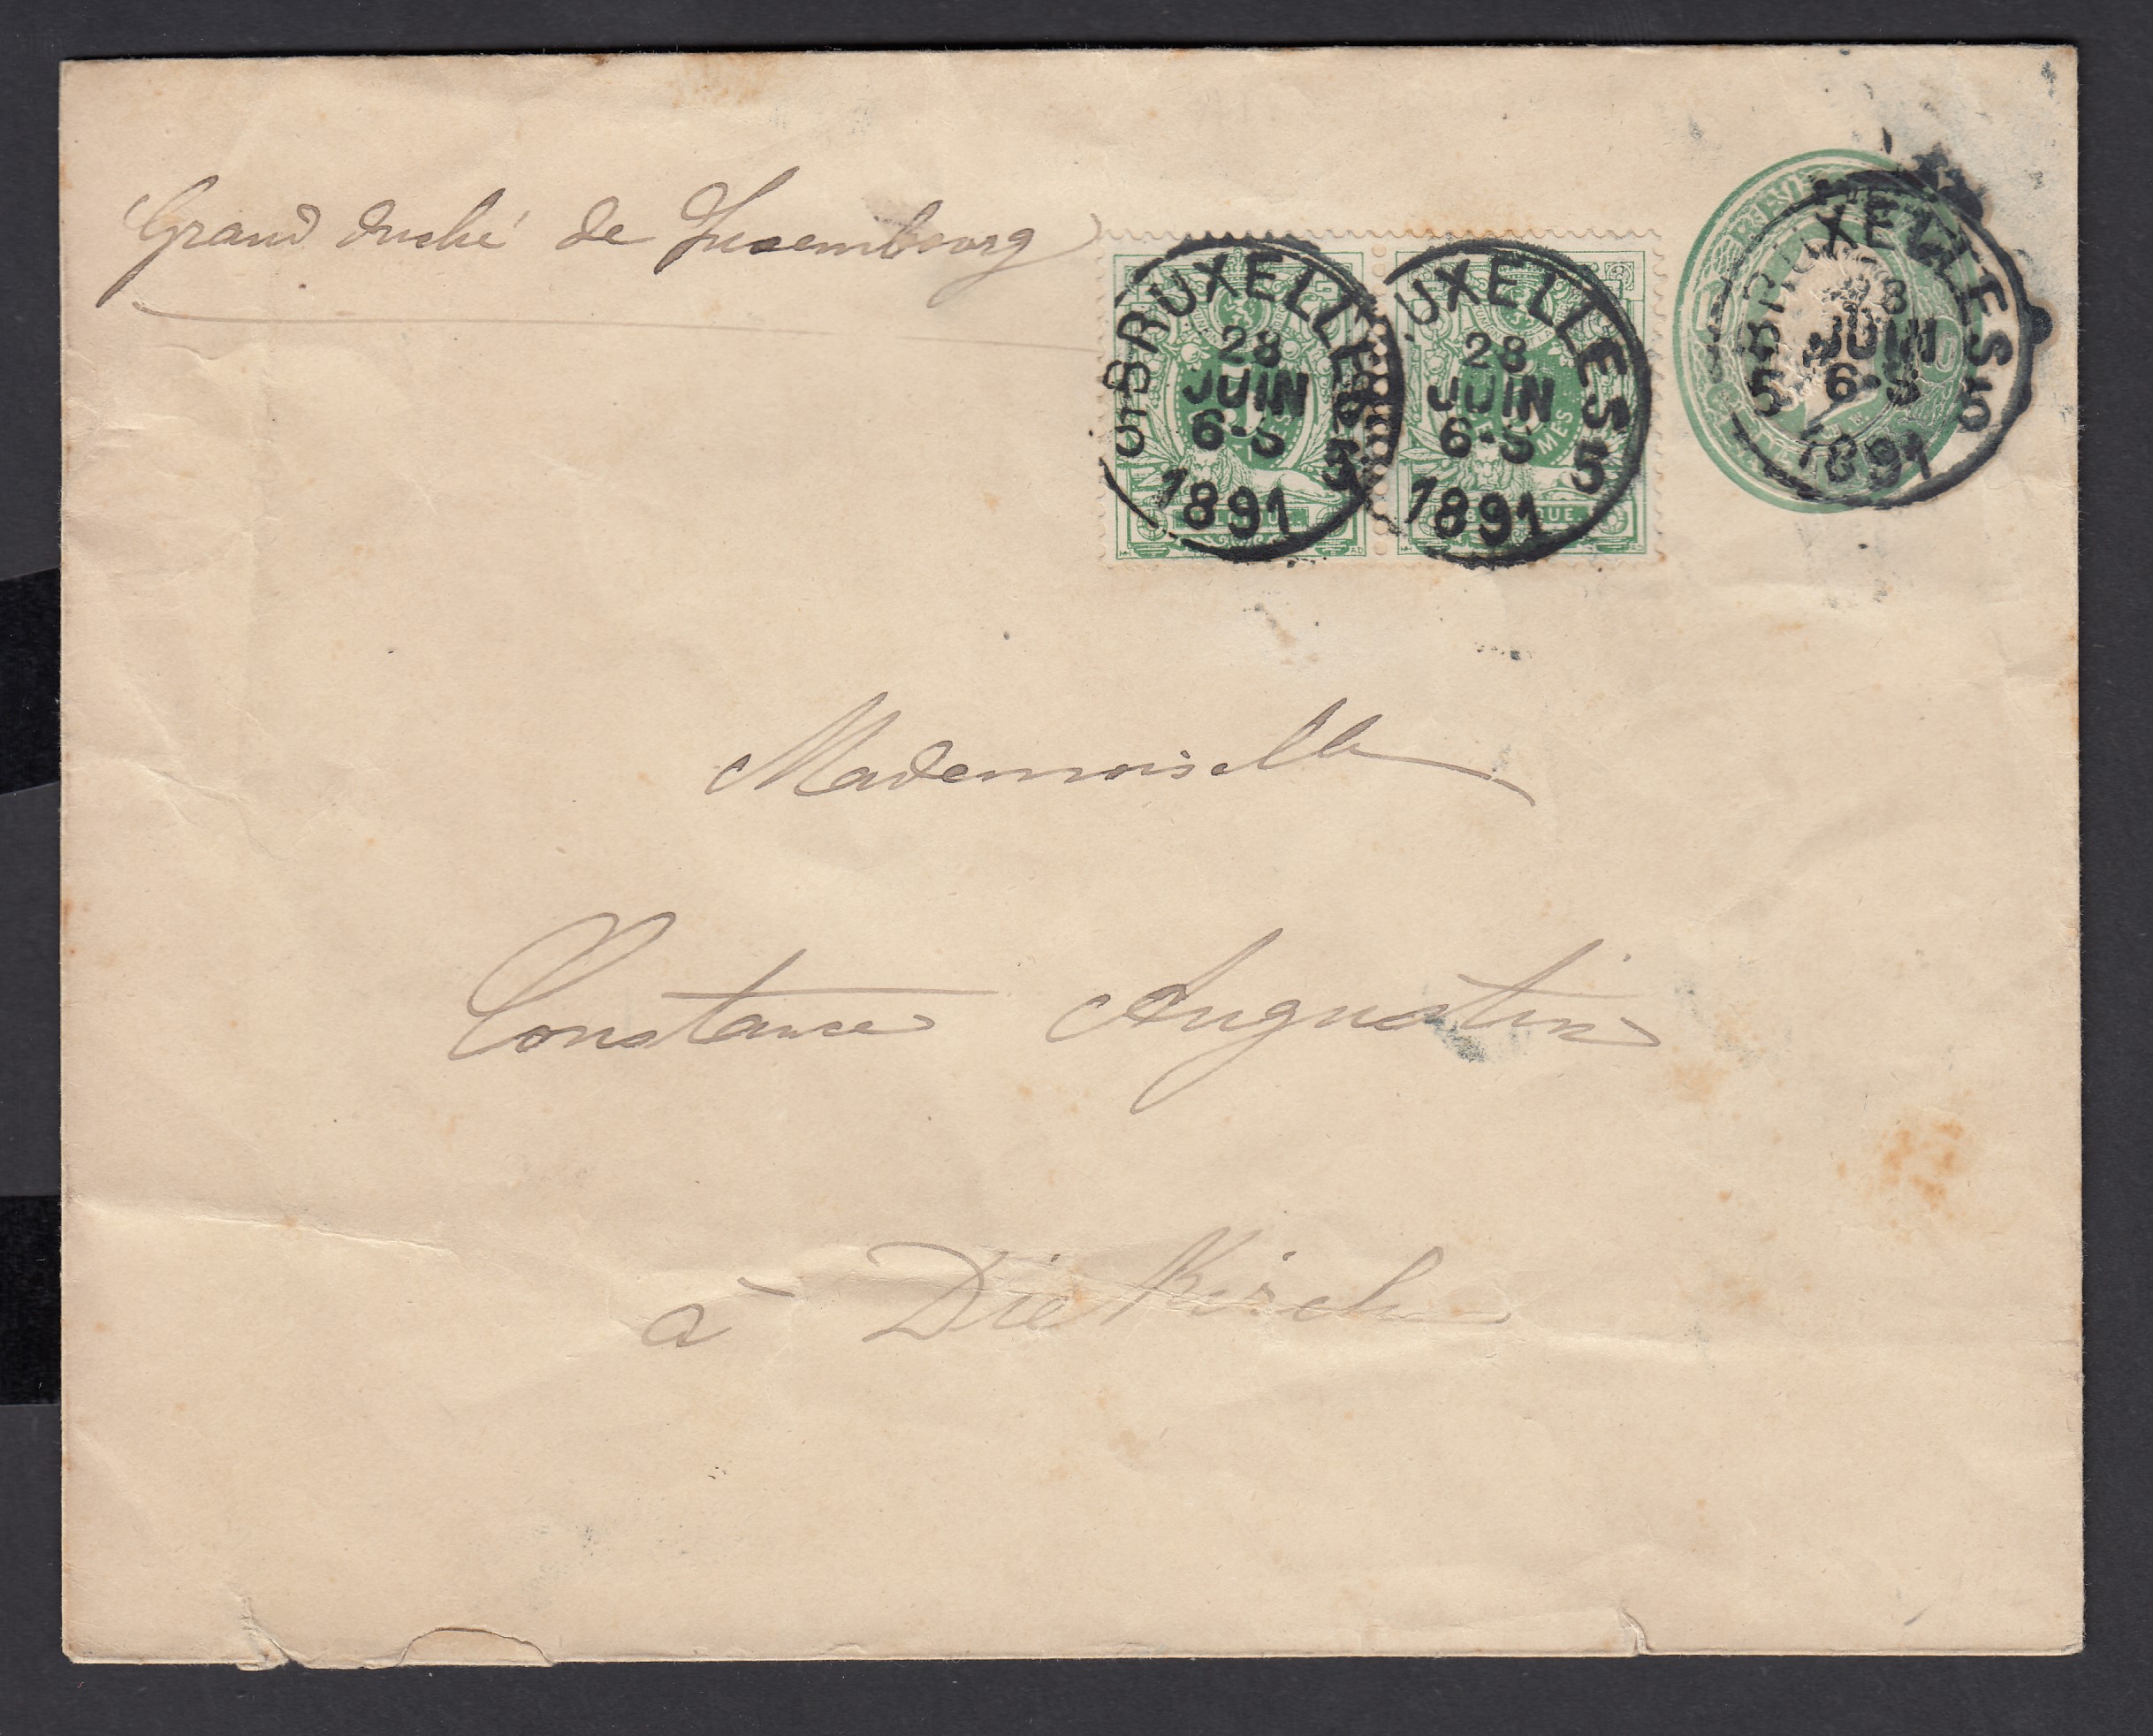 Grand duché de Luxembourg
5 BRUXELLES 5
28
JUIN
6-S
1891
BELGIQUE.
UXELLES 5
28
JUIN
6-S
1891
5 BRUXELLES 5
28
JUIN
6-S
1891
Mademoiselle
Constance Augustin
à Diekirch